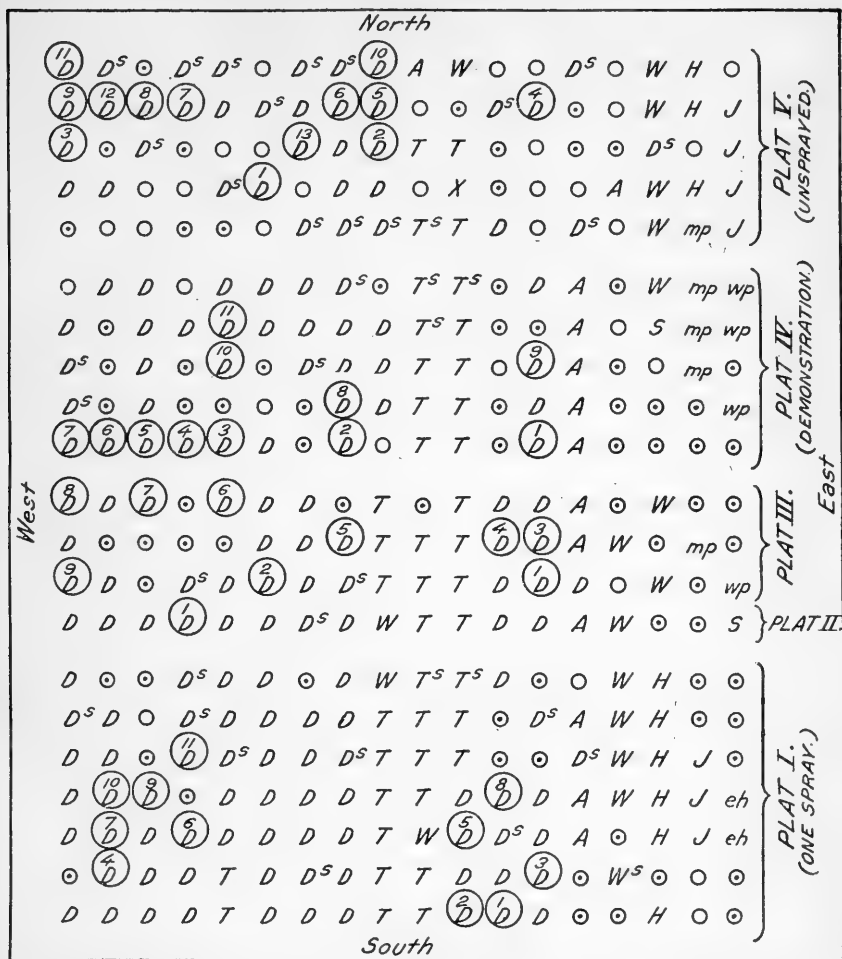 North
11 D Dˢ ⊙ Dˢ Dˢ ○ Dˢ Dˢ 10 D A W ○ ○ Dˢ ○ W H ○
9 D 12 D 8 D 7 D D Dˢ D 6 D 5 D ○ ⊙ Dˢ 4 D ⊙ ○ W H J
3 D ⊙ Dˢ ⊙ ○ ○ 13 D D 2 D T T ⊙ ○ ⊙ ⊙ Dˢ ○ J
D D ○ ○ Dˢ 1 D ○ D D ○ X ⊙ ○ ○ A W H J
⊙ ○ ○ ⊙ ⊙ ○ Dˢ Dˢ Dˢ Tˢ T D ○ Dˢ ○ W mp J
PLAT V.
(UNSPRAYED.)
○ D D ○ D D D Dˢ ⊙ Tˢ Tˢ ⊙ D A ⊙ W mp wp
D ⊙ D D 11 D D D D D Tˢ T ⊙ ⊙ A ○ S mp wp
Dˢ ⊙ D ⊙ 10 D ⊙ Dˢ D D T T ○ 9 D A ⊙ ○ mp ⊙
Dˢ ⊙ D ⊙ ⊙ ○ ⊙ 8 D D T T ⊙ D A ⊙ ⊙ ⊙ wp
7 D 6 D 5 D 4 D 3 D D ⊙ 2 D ○ T T ⊙ 1 D A ⊙ ⊙ ⊙ ⊙
PLAT IV.
(DEMONSTRATION.)
West
East
8 D D 7 D ⊙ 6 D D D ⊙ T ⊙ T D D A ⊙ W ⊙ ⊙
D ⊙ ⊙ ⊙ ⊙ D D 5 D T T T 4 D 3 D A W ⊙ mp ⊙
9 D D ⊙ Dˢ D 2 D D Dˢ T T T D 1 D D ○ W ⊙ wp
PLAT III.
D D D 1 D D D Dˢ D W T T D D A W ⊙ ⊙ S
PLAT II.
D ⊙ ⊙ Dˢ D D ⊙ D W Tˢ Tˢ D ⊙ ○ W H ⊙ ⊙
Dˢ D ○ Dˢ D D D D T T T ⊙ Dˢ A W H ⊙ ⊙
D D ⊙ 11 D Dˢ D D Dˢ T T T ⊙ ⊙ Dˢ W H J ⊙
D 10 D 9 D ⊙ D D D D T T D 8 D D A W H J eh
D 7 D D 6 D D D D D T W 5 D Dˢ D A ⊙ H J eh
⊙ 4 D D D T D Dˢ D T T D D 3 D ⊙ Wˢ ⊙ ○ ⊙
D D D D T D D D T T 2 D 1 D D ⊙ ⊙ H ○ ⊙
PLAT I.
(ONE SPRAY.)
South